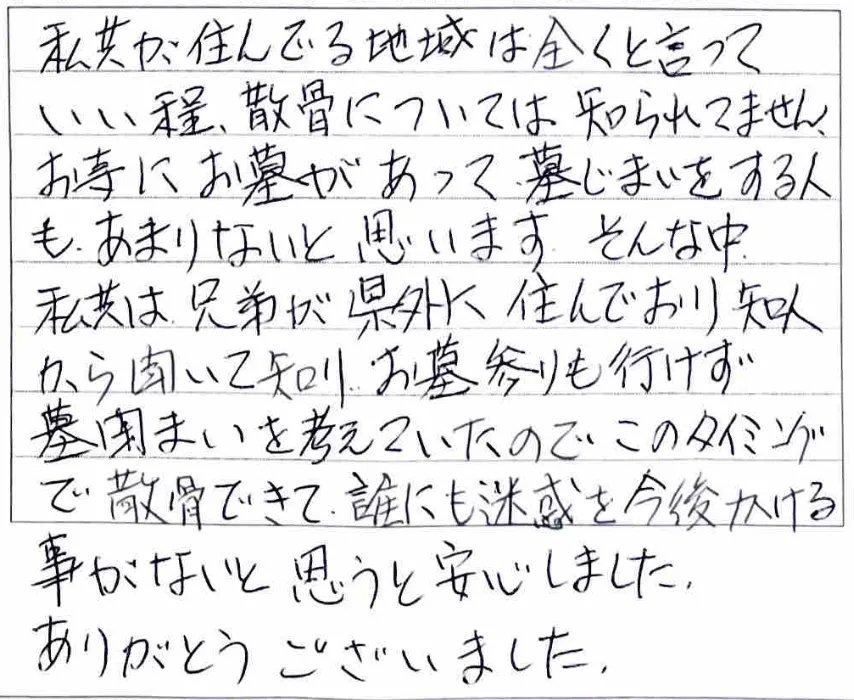 私共が住んでる地域は全くと言って
いい程、散骨については知られてません、
お寺にお墓があって墓じまいをする人
も、あまりないと思います。そんな中、
私共は、兄弟が県外に住んでおり知人
から聞いて知り、お墓参りも行けず
墓閉まいを考えていたのでこのタイミング
で散骨できて、誰にも迷惑を今後かける
事がないと思うと安心しました。
ありがとうございました。